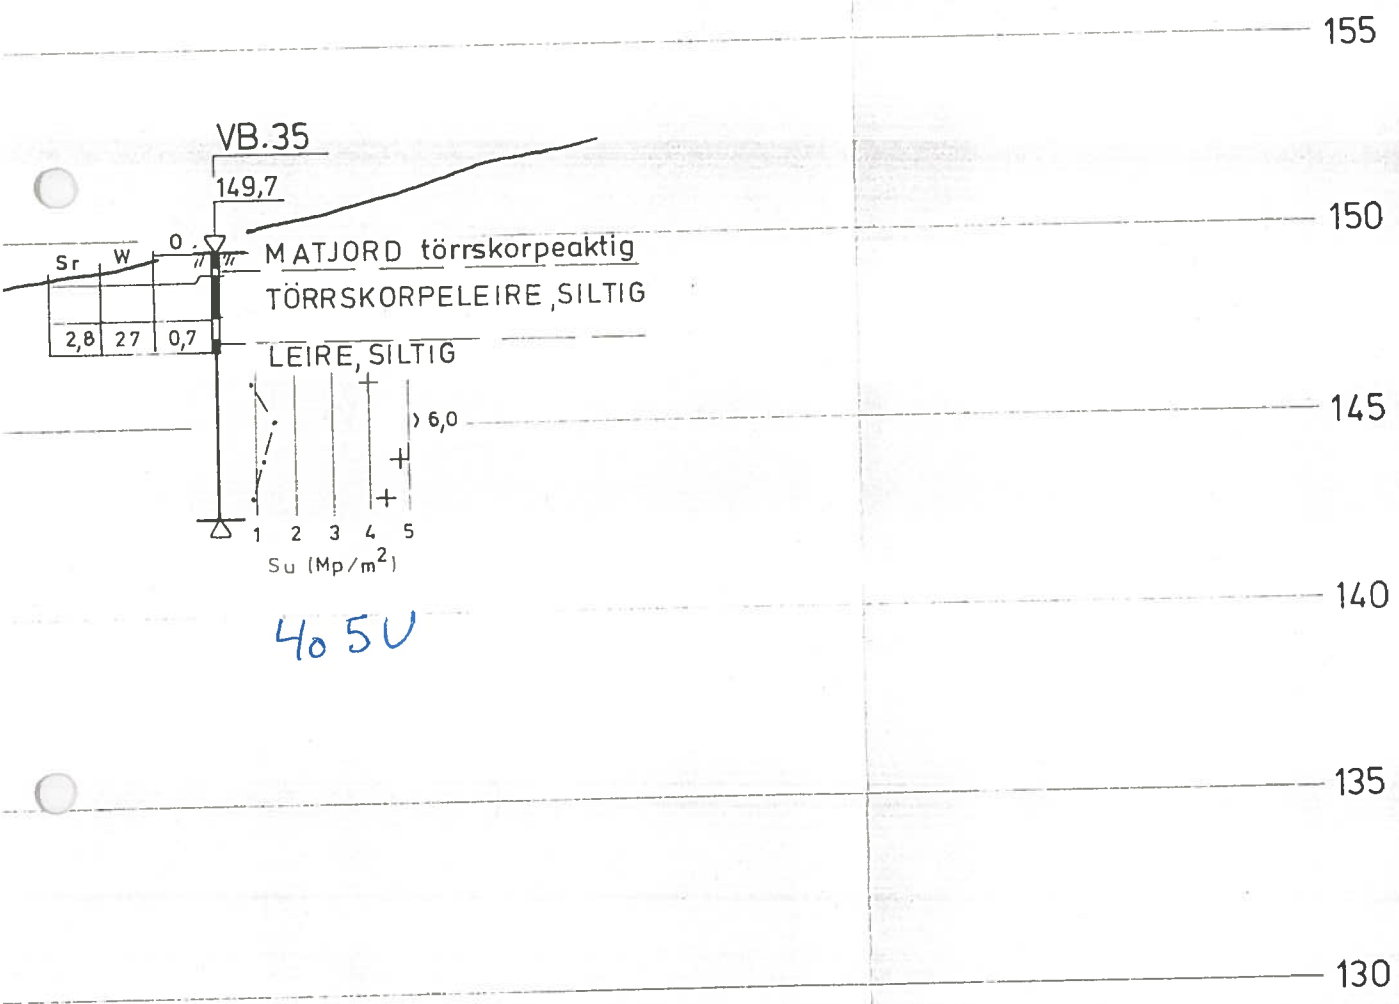 155
VB.35
149,7
150
Sr W O
MATJORD törrskorpeaktig
TÖRRSKORPELEIRE, SILTIG
2,8 27 0,7
LEIRE, SILTIG
145
> 6,0
1 2 3 4 5
Su (Mp/m²)
140
40 5U
135
130